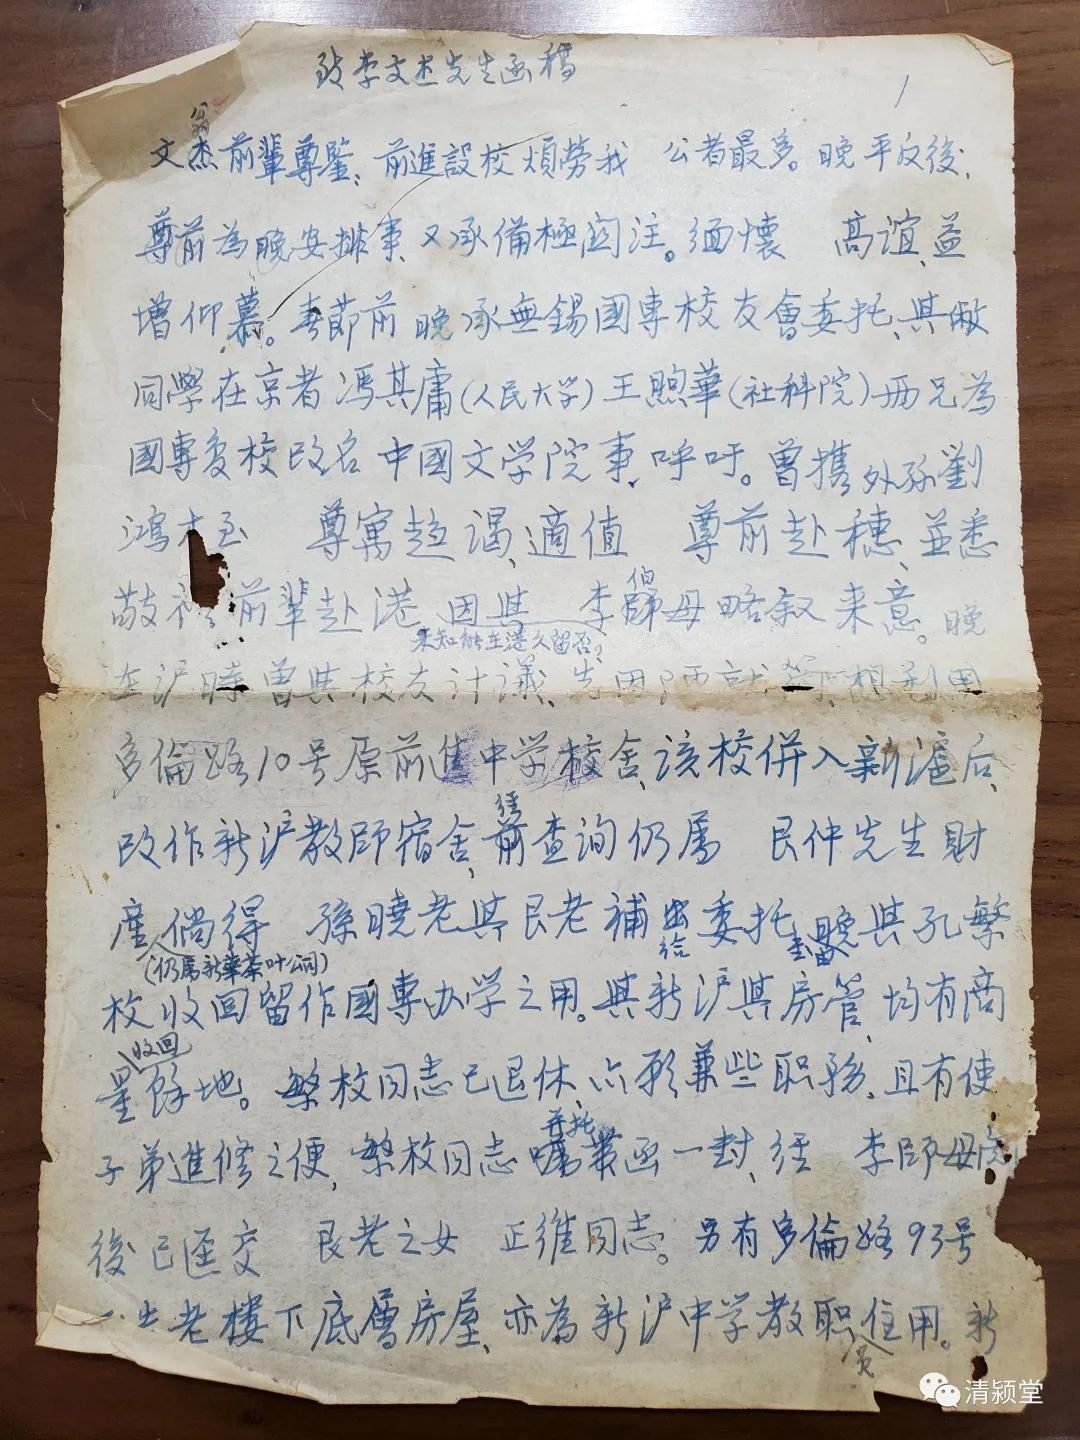 致李文杰先生函稿
1
文杰前輩尊鑒：前進設校煩勞我 公者最多。晚平反後，
翁
尊前為晚安排事，又承備極關注。緬懷 高誼，益
增仰慕。春節前晚承無錫國專校友會委托，與敝
同學在京者馮其庸(人民大学)王煦華(社科院)兩兄為
國專复校改名中國文学院事，呼吁。曾携外孫劉
鴻 至 尊寓趋谒，適值 尊前赴穗，並悉
敬 前輩赴港 因與 李 伯母略叙来意。晚
未知能在港久留否，
在沪時曾與校友計議，先 想利用
多倫路10号原前進中学校舍，该校併入新滬后，
改作新沪教師宿舍，經查询仍属 艮仲先生財
產，倘得 孫曉老與艮老補 委托 晚與孔繁
(仍属新華茶叶公司) 給 書
校收回留作國專办学之用。與新沪與房管，均有商
量收回餘地。繁校同志已退休，亦願兼些职務，且有使
子弟進修之便，繁枚同志 并托 函一封，經 李師母
後已匯交 艮老之女 正維同志。另有多倫路93号
老樓下底層房屋，亦為新沪中学教职員住用。新
清颍堂